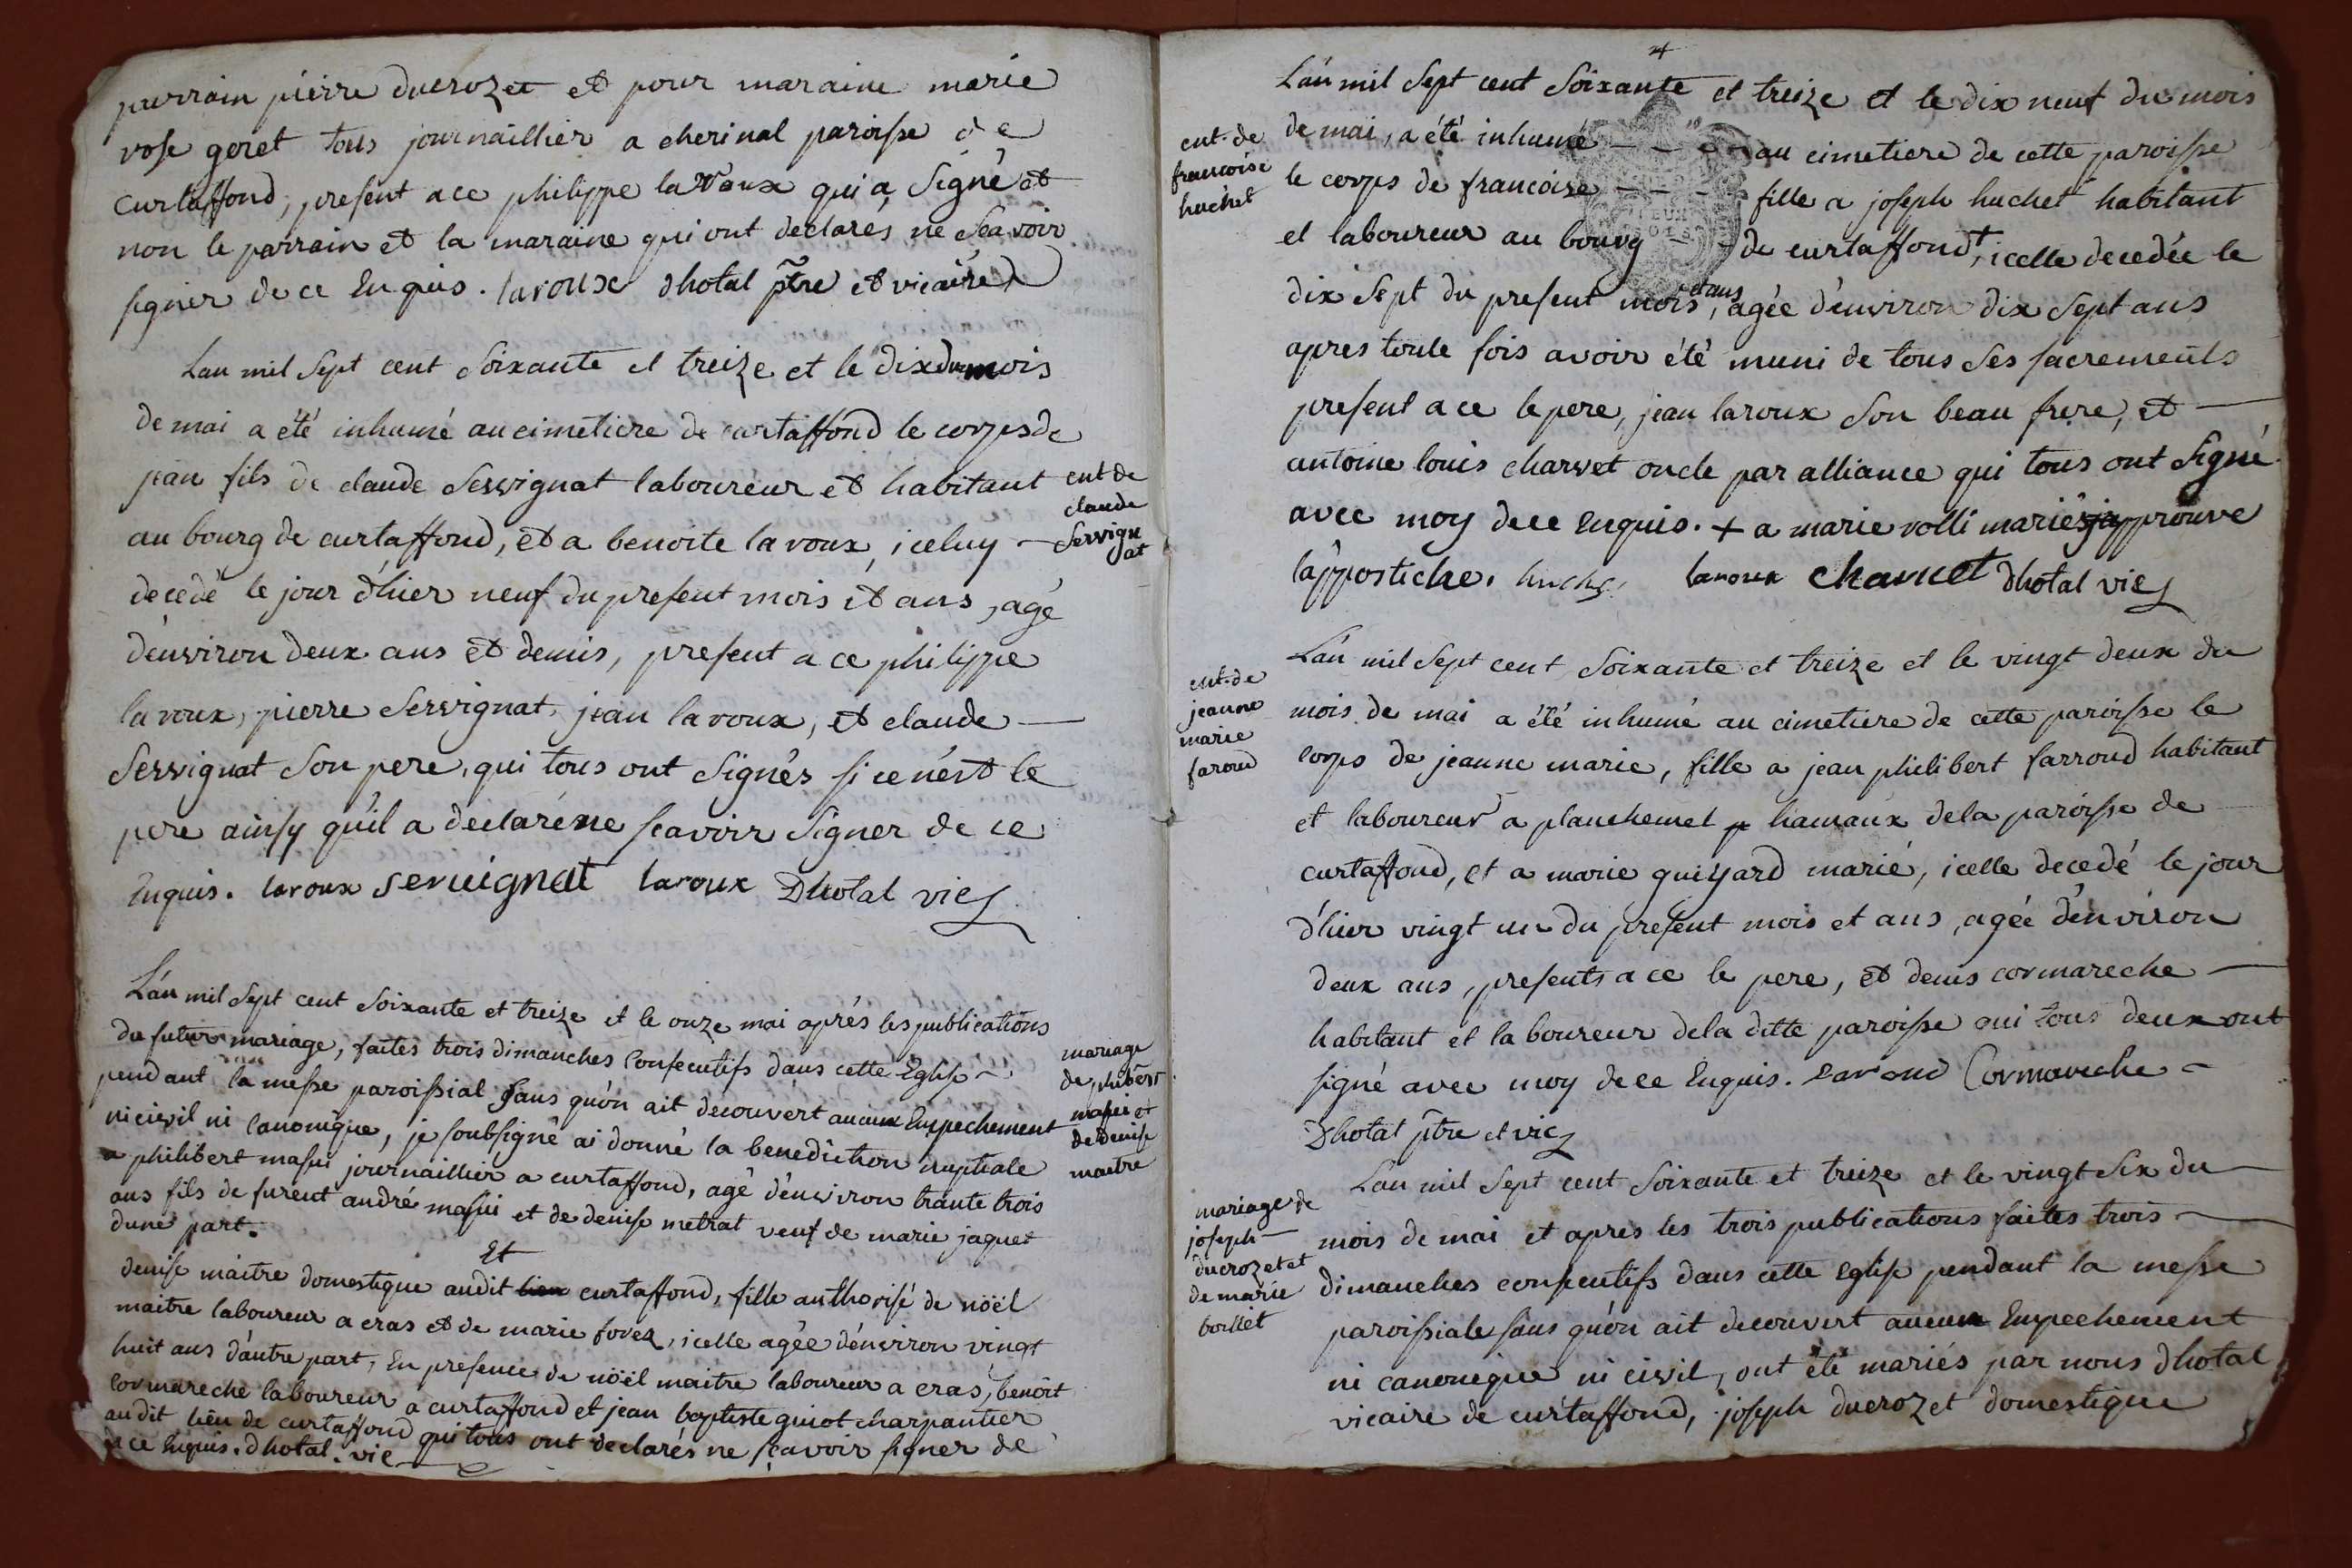 parrain pierre ducrozet et pour maraine marie
rose goret tous journaillier a cherinal paroisse de
curtaffond, present a ce philippe laroux qui a signé et
non le parrain et la maraine qui ont declarés ne scavoir
signer de ce enquis. laroux dhotal ptre et vicaire
Lan mil sept cent soixante et treize et le dix du mois
de mai a été inhumé au cimetiere de curtaffond le corps de
jean fils de claude servignat laboureur et habitant
au bourg de curtaffond, et a benoite laroux, iceluy
decedé le jour d'hier neuf du present mois et ans, agé
d'environ deux ans et demis, present a ce philippe
laroux, pierre servignat, jean laroux, et claude
servignat son pere, qui tous ont signés si ce n'est le
pere ainsy qu'il a declaré ne scavoir signer de ce
enquis. laroux servignat laroux Dhotal vic
ent de
claude
servign
at
L'an mil sept cent soixante et treize et le onze mai aprés les publications
du futur mariage, faites trois dimanches consecutifs dans cette Eglise
pendant la messe paroissial sans qu'on ait decouvert aucun Empechement
ni civil ni canonique, je soubsigné ai donné la benediction nuptiale
a philibert masui journaillier a curtaffond, agé d'environ trante trois
ans fils de furent andré masui et de denise metrat veuf de marie jaquet
dune part.
Et
denise maitre domestique audit lieu curtaffond, fille authorisé de nöël
maitre laboureur a cras et de marie forez, icelle agée d'environ vingt
huit ans d'autre part, En presence de nöël maitre laboureur a cras, benoit
cormareche laboureur a curtaffond et jean baptiste guiot charpantier
audit lieu de curtaffond qui tous ont declarés ne scavoir signer de
ce enquis. dhotal. vic
mariage
de phibert
masui et
de denise
maitre
L'an mil sept cent soixante et treize et le dix neuf du mois
de mai, a été inhumé au cimetiere de cette paroisse
le corps de francoise fille a joseph huchet habitant
et laboureur au bourg de curtaffond,+ icelle decedée le
dix sept du present mois et ans, agée d'environ dix sept ans
apres toute fois avoir été muni de tous ses sacrements
present a ce le pere, jean laroux son beau frere, et
antoine louis charvet oncle par alliance qui tous ont signé
avec moy de ce enquis. + a marie volli mariés japprouve
l'appostiche. huchet laroux charvet Dhotal vic
ent. de
francoise
huchet
L'an mil sept cent soixante et treize et le vingt deux du
mois de mai a été inhumé au cimetiere de cette paroisse le
corps de jeanne marie, fille a jean philibert farroud habitant
et laboureur a planchemel hamaux de la paroisse de
curtaffond, et a marie guiyard marié, icelle decedé le jour
d'hier vingt un du present mois et ans, agée d'environ
deux ans, presents a ce le pere, et denis cormareche
habitant et laboureur de la ditte paroisse qui tous deux ont
signé avec moy de ce Enquis. Cormareche
Dhotal ptre et vic
ent. de
jeanne
marie
faroud
Lan mil sept cent soixante et treize et le vingt six du
mois de mai et apres les trois publications faites trois
dimanches consecutifs dans cette eglise pendant la messe
paroissiale sans qu'on ait decouvert aucun Empechement
ni canonique ni civil, ont été mariés par nous dhotal
vicaire de curtaffond, joseph ducrozet domestique
mariage de
joseph
ducrozet et
de marie
boillet